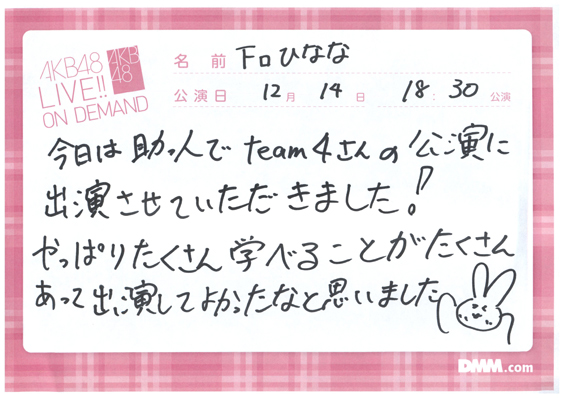 AKB48
LIVE!!
ON DEMAND
AKB
48
名 前 下口ひなな
公演日 12月 14日 18:30公演
今日は助っ人でteam4さんの公演に
出演させていただきました!
やっぱりたくさん学べることがたくさん
あって出演してよかったなと思いました
DMM.com